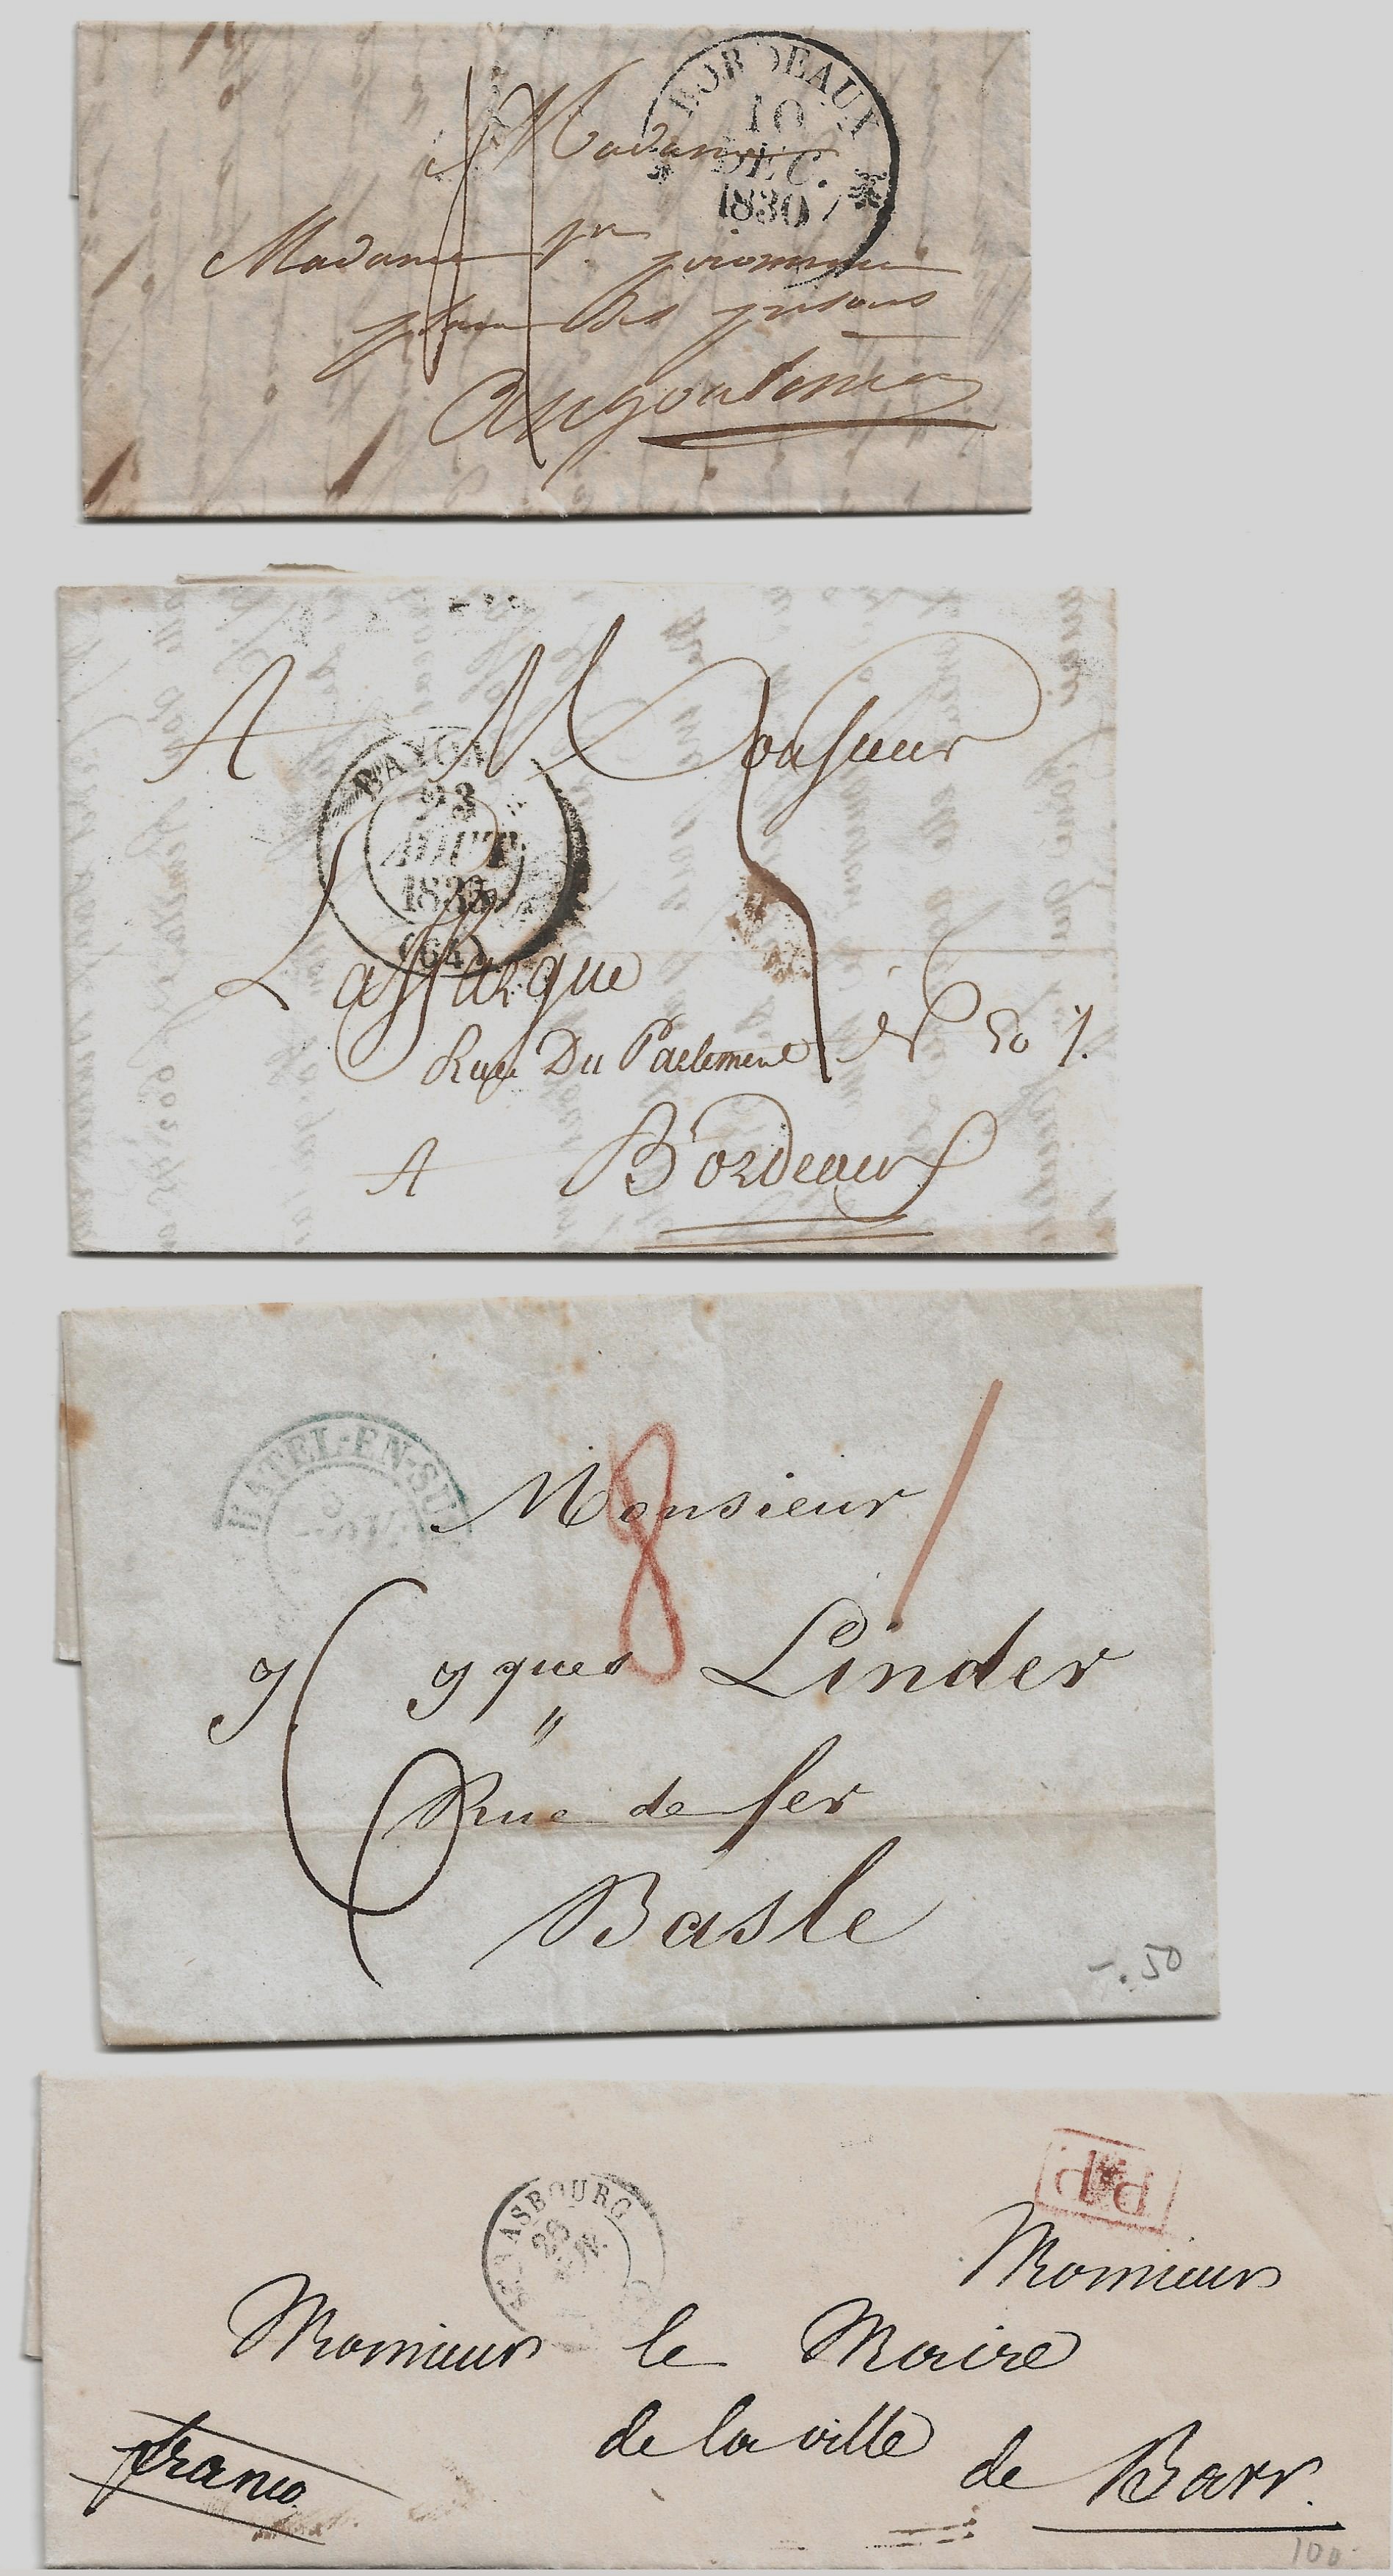 BORDEAUX
10
DEC.
1830
Madame
Madame
place des prisons
angouleme
A Monsieur
BAYON
23
AOUT
183
(64)
Laffargue
Rue Du Parlement No 50
A Bordeaux
HATEL-EN-SU
8
Monsieur
Jques Linder
"
Rue de fer
Basle
6
-.50
P.P.
STRASBOURG
Monsieur
Monsieur le Maire
de la ville
de Barr.
franco
100